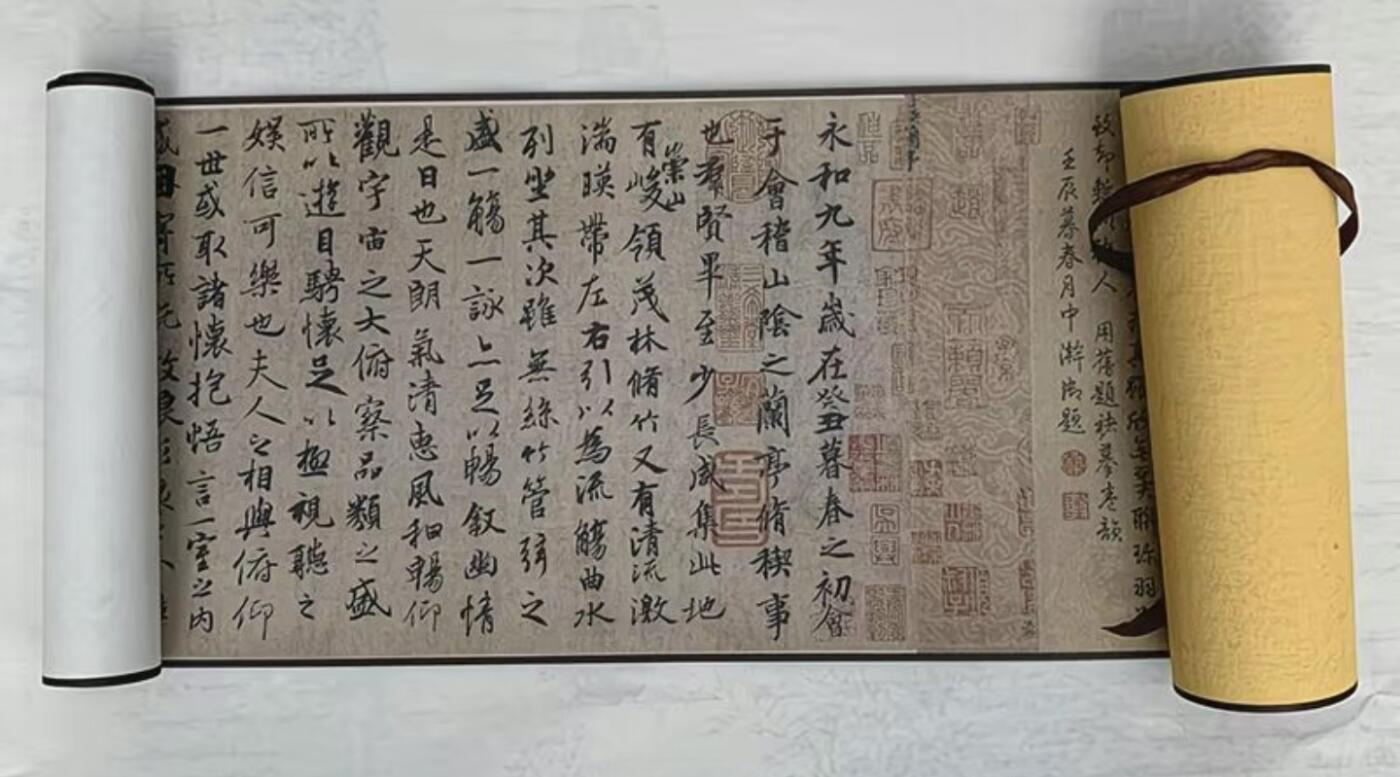 壬辰暮春月中澣御題
永和九年歲在癸丑暮春之初會
于會稽山陰之蘭亭脩稧事
也羣賢畢至少長咸集此地
有崇山峻領茂林脩竹又有清流激
湍暎帶左右引以為流觴曲水
列坐其次雖無絲竹管弦之
盛一觴一詠亦足以暢叙幽情
是日也天朗氣清惠風和暢仰
觀宇宙之大俯察品類之盛
所以遊目騁懷足以極視聽之
娛信可樂也夫人之相與俯仰
一世或取諸懷抱悟言一室之內